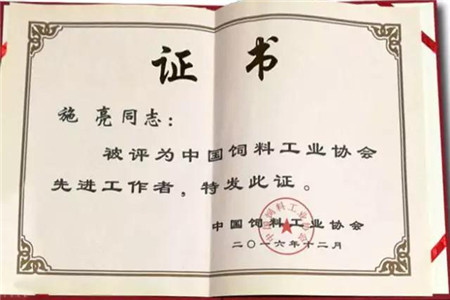 证书
施亮同志：
被评为中国饲料工业协会
先进工作者，特发此证。
中国饲料工业协会
二〇一六年十二月
中国饲料工业协会